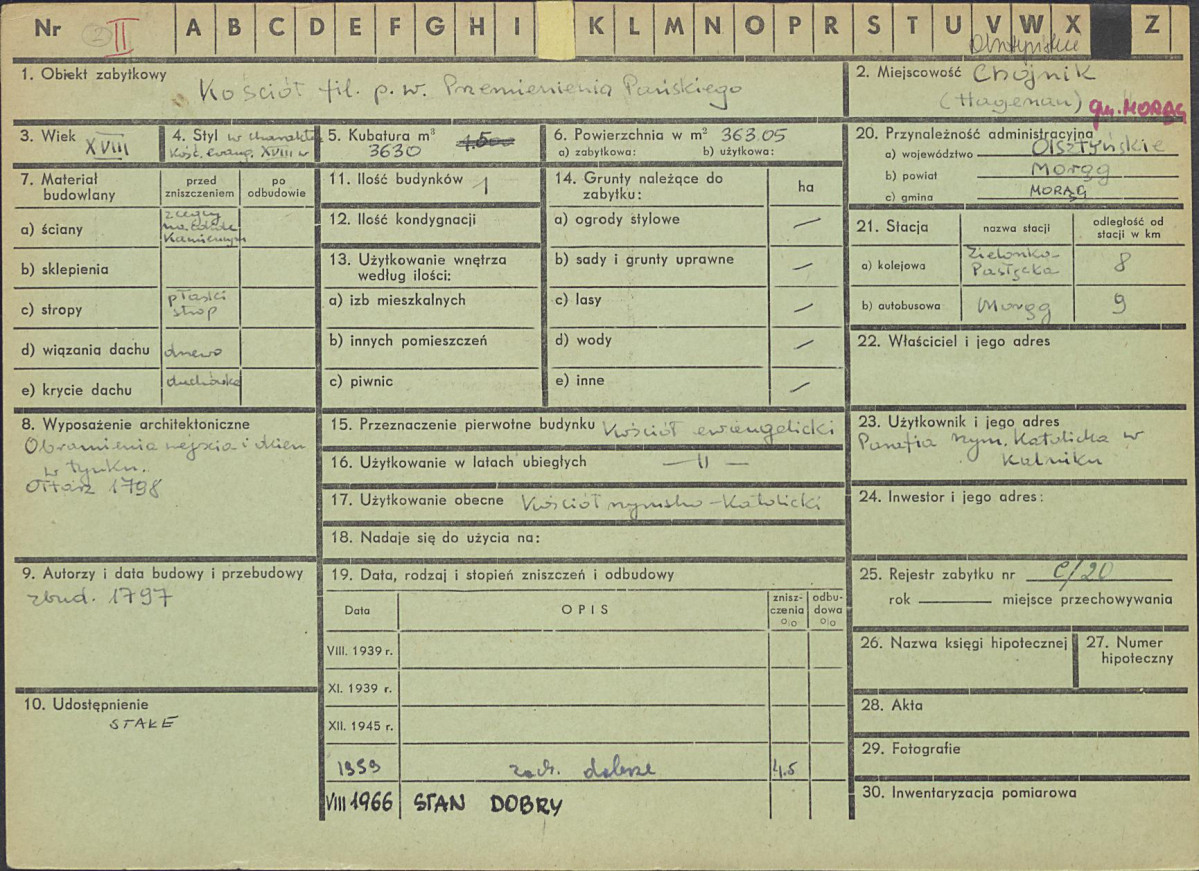 Nr 2 II A B C D E F G H I K L M N O P R S T U V W X Z
Olsztyńskie
1. Obiekt zabytkowy
Kościół fil. p.w. Przemienienia Pańskiego
2. Miejscowość Chojnik
(Hagenau) gm. MORĄG
3. Wiek XVIII
4. Styl w charakt.
Kość. ewang. XVIII w
5. Kubatura m³
3630
6. Powierzchnia w m² 363.05
a) zabytkowa: b) użytkowa:
20. Przynależność administracyjna
a) województwo OlSZTYńskie
b) powiat Morąg
c) gmina MORĄG
7. Materiał budowlany
przed zniszczeniem
po odbudowie
a) ściany
z cegły
kamiennym
b) sklepienia
c) stropy
płaski
strop
d) wiązania dachu drewo
e) krycie dachu dachówka
11. Ilość budynków 1
12. Ilość kondygnacji
13. Użytkowanie wnętrza
według ilości:
a) izb mieszkalnych
b) innych pomieszczeń
c) piwnic
14. Grunty należące do
zabytku:
ha
a) ogrody stylowe —
b) sady i grunty uprawne —
c) lasy —
d) wody —
e) inne —
21. Stacja
nazwa stacji
odległość od
stacji w km
a) kolejowa
Zielonka-
Pasłęcka 8
b) autobusowa Morąg 9
22. Właściciel i jego adres
8. Wyposażenie architektoniczne
Obramienia wejścia i okien
w tynku.
Ołtarz 1798
15. Przeznaczenie pierwotne budynku Kościół ewangelicki
16. Użytkowanie w latach ubiegłych —„—
17. Użytkowanie obecne Kościół rzymsko-Katolicki
18. Nadaje się do użycia na:
23. Użytkownik i jego adres
Parafia rzym. Katolicka w
Kalniku
24. Inwestor i jego adres:
9. Autorzy i data budowy i przebudowy
zbud. 1797
19. Data, rodzaj i stopień zniszczeń i odbudowy
Data
OPIS
znisz-
czenia
%
odbu-
dowa
%
VIII. 1939 r.
XI. 1939 r.
XII. 1945 r.
1959 zach. dobrze 4.5
VIII 1966 STAN DOBRY
25. Rejestr zabytku nr C/20
rok miejsce przechowywania
26. Nazwa księgi hipotecznej
27. Numer
hipoteczny
10. Udostępnienie
STAŁE
28. Akta
29. Fotografie
30. Inwentaryzacja pomiarowa